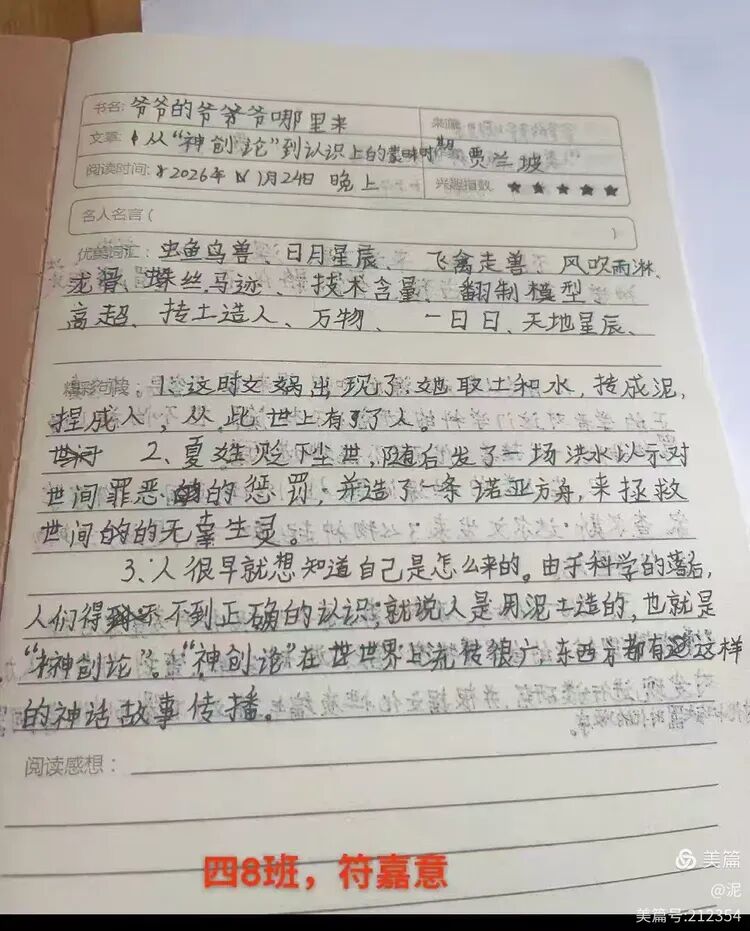 书名: 爷爷的爷爷爷哪里来
来源:
文章: 从“神创论”到认识上的蒙昧时期 贾兰坡
阅读时间: 2026年 1月24日 晚上
兴趣指数 ★ ★ ★ ★ ★
名人名言 ( )
优美词汇: 虫鱼鸟兽、日月星辰、飞禽走兽 风吹雨淋、
龙骨、蛛丝马迹、技术含量、翻制模型
高超、抟土造人、万物、一日日、天地星辰、
精彩句段: 1、这时女娲出现了,她取土和水,抟成泥,
捏成人,从,此世上有了人。
2、夏娃贬下尘世,随后发了一场洪水以示对
世间罪恶的惩罚,并造了一条诺亚方舟,来拯救
世间的的无辜生灵。
3、人很早就想知道自己是怎么来的。由于科学的落后,
人们得不到正确的认识,就说人是用泥土造的,也就是
“神创论”。“神创论”在世世界上流传很广,东西方都有这样
的神话故事传播。
阅读感想:
四8班，符嘉意
美篇
@泥
美篇号:212354